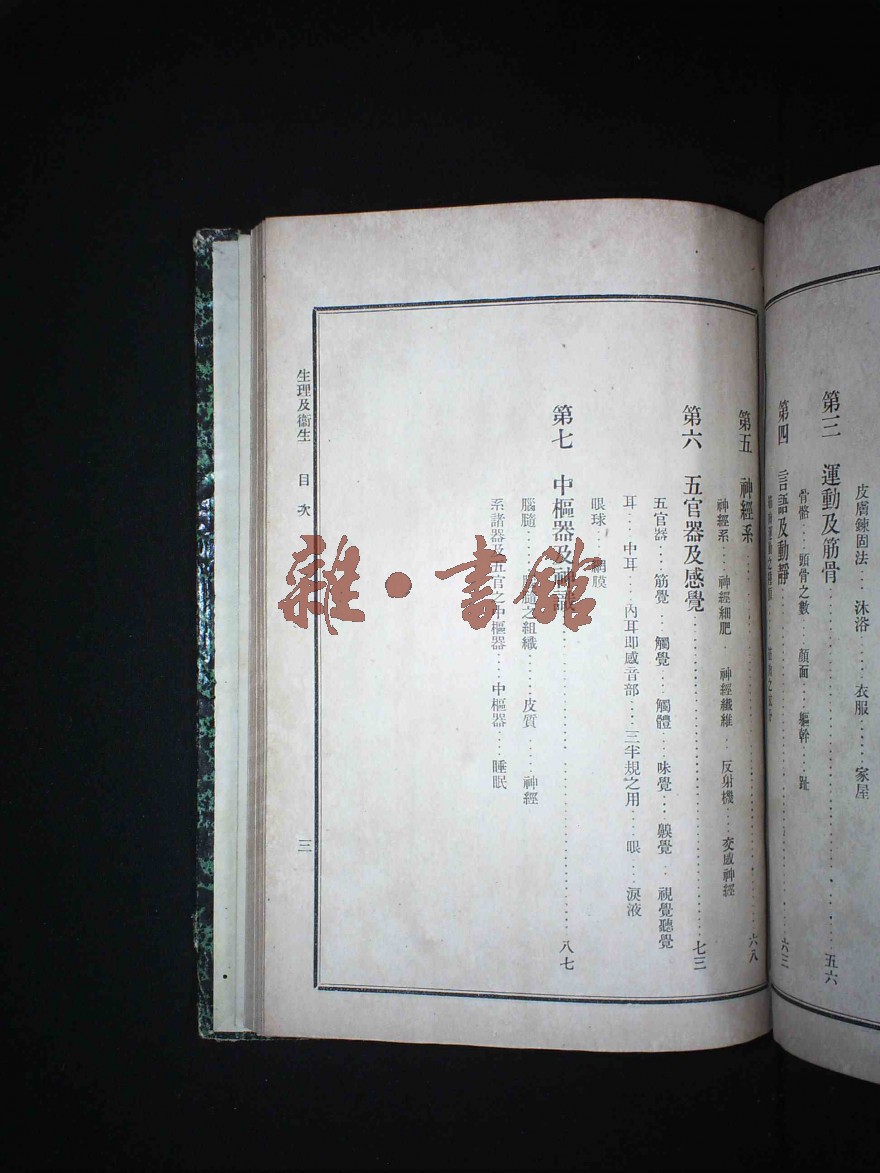 皮膚鍊固法……沐浴……衣服……家屋
第三 運動及筋骨……五六
骨骼…頭骨之數…顏面…軀幹…趾
第四 言語及動靜……六三
第五 神經系……六八
神經系……神經細肥…神經纖維…反射機……交感神經
第六 五官器及感覺……七三
五官器…筋覺…觸覺…觸體…味覺…嗅覺…視覺聽覺
耳……中耳……內耳即感音部……三半規之用……眼……淚液
眼球……網膜
第七 中樞器及神識……八七
腦髓……腦髓之組織……皮質……神經
系諸器及五官之中樞器……中樞器……睡眠
生理及衞生 目次
三
雜·書館